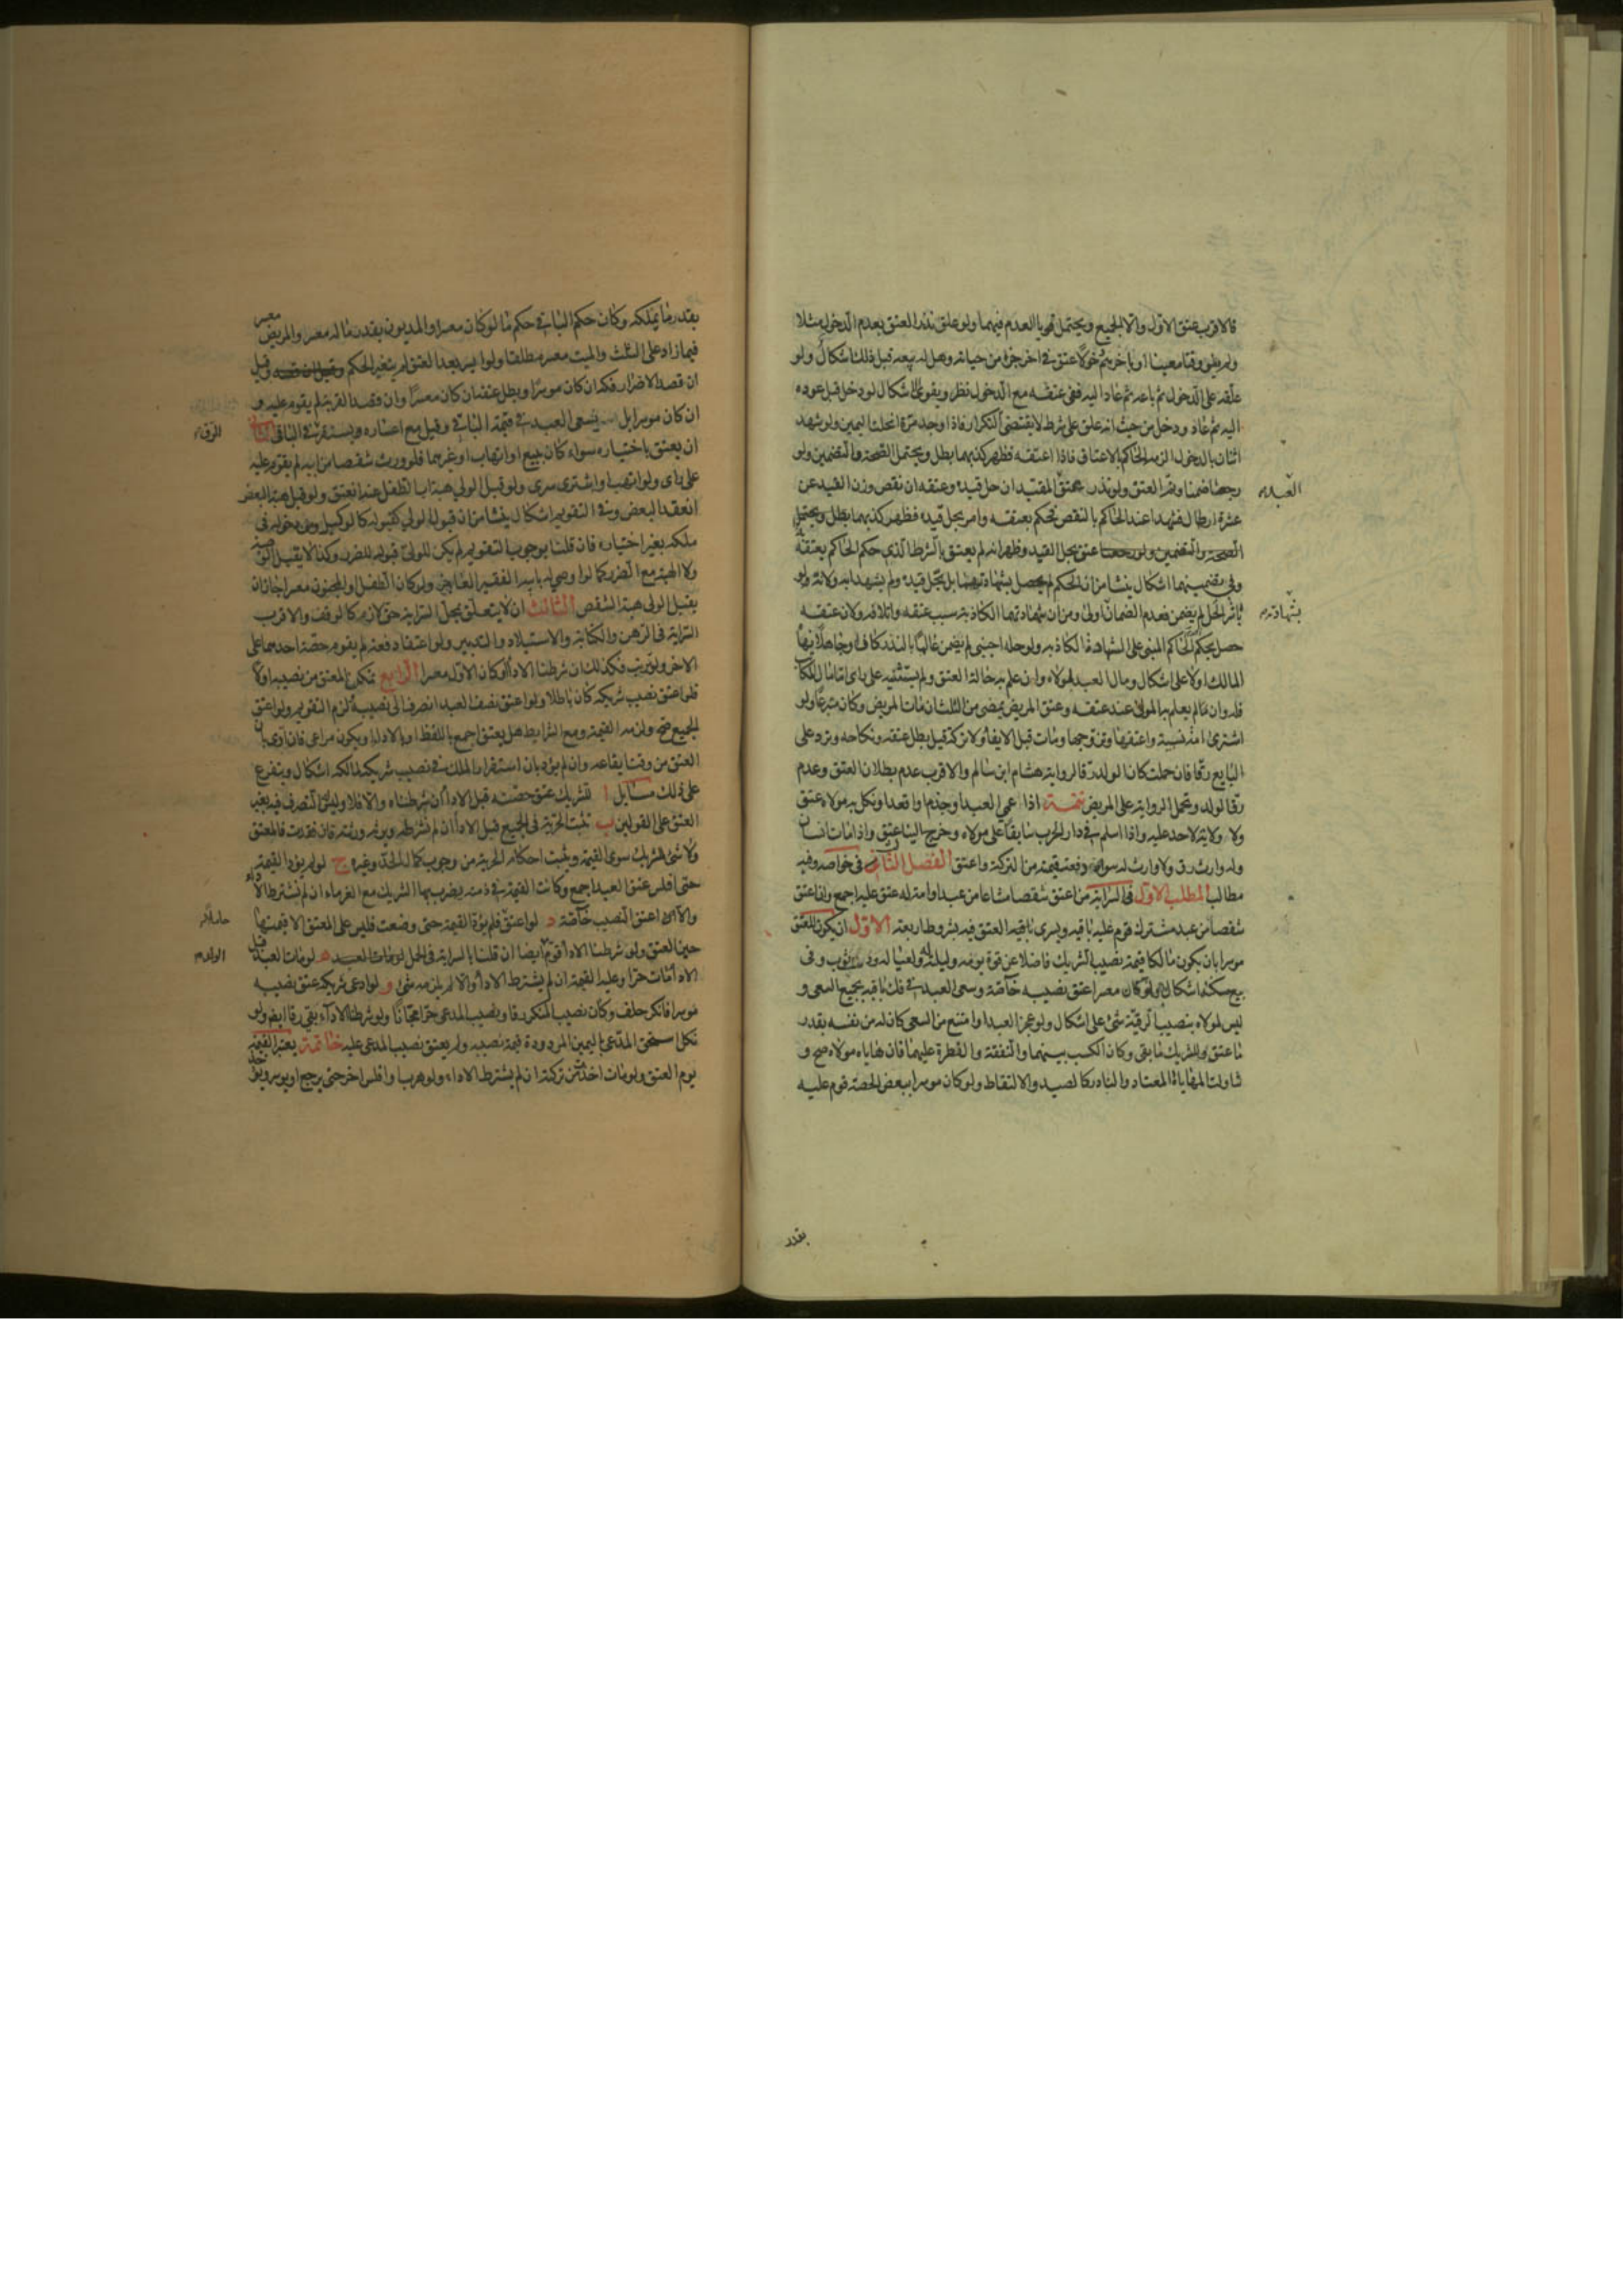 فالاقرب عتق الاول والا الجميع ويحتمل قويا العدم فيهما ولو علق نذر العتق بعدم الدخول مثلا
ولم ينو وقتا معينا او عتق في اخر جزء من حياته وهل له بيعه قبل ذلك اشكال ولو
علقه على الدخول ثم باعه ثم عاد اليه ففي عتقه مع الدخول نظر ويقوى الاشكال لو دخل قبل عوده
اليه ثم عاد ودخل من حيث انه علق على شرط لا يقتضي التكرار فاذا وجد مرة انحلت اليمين ولو شهد
اثنان بالدخول الزمه الحاكم بالاعتاق فاذا اعتقه فظهر كذبهما بطل ويحتمل الصحة والتضمين ولو
رجعا ضمنا وتم العتق ولو نذر عتق المقيد ان حل قيده وعتقه ان نقص وزن القيد عن
العبد
عشرة ارطال فشهدا عند الحاكم بالنقص فحكم بعتقه وامر بحل قيده فظهر كذبهما بطل ويحتمل
الصحة والتضمين عتق بحل القيد وظهر انه لم يعتق بالشرط الذي حكم الحاكم بعتقه
وفي تضمينهما اشكال ينشأ من ان الحكم لم يحصل بشهادتهما بل بحل قيده ولم يشهدا به ولانه لو
باشر الحل لم يضمن فعدم الضمان اولى ومن ان شهادتهما الكاذبة سبب عتقه واتلافه ولان عتقه
بشهادته
حصل بحكم الحاكم المبني على الشهادة الكاذبه ولو حله اجنبي لم يضمن عالما بالنذر كان او جاهلا نهاه
المالك اولا على اشكال ومال العبد لمولاه وان علم به حالة العتق ولم يستثنه على راي اما مال المكاتب
فله وان مالم يعلم به المولى عند عتقه وعتق المريض يمضي من الثلث ان مات المريض وكان متبرعا ولو
اشترى امة نسيئة واعتقها وتزوجها ومات قبل الايفاء ولا تركة قيل بطل عتقه ونكاحه وترد على
البايع رقا فان حملت كان الولد رقا لرواية هشام ابن سالم والاقرب عدم بطلان العتق وعدم
رق الولد وتحمل الرواية على المريض تتمة اذا عمي العبد او جذم او اقعد او نكل به مولاه عتق
ولا ولاية لاحد عليه واذا اسلم في دار الحرب سابقا على مولاه وخرج الينا عتق واذا مات انسان
وله وارث رق ولا وارث له سواه دفعت قيمته من التركة واعتق الفصل الثاني في خواصه وفيه
مطالب المطلب الاول في السراية من اعتق شقصا مشاعا من عبد او امة له عتق عليه اجمع وان اعتق
شقصا من عبد مشترك قوم عليه باقيه ويسري باقيه العتق فيه بشروط اربعة الاول ان يكون المعتق
موسرا بان يكون مالكا قيمة نصيب الشريك فاضلا عن قوت يومه وليلة له ولعياله ودست ثوب وفي
بيع مسكنه اشكال ولو كان معسرا عتق نصيبه خاصة وسعى العبد في فك باقيه بجميع السعي و
ليس لمولاه بنصيب الرقية شئ على اشكال ولو عجز العبد او امتنع من السعي كان له من نفسه بقدر
ما عتق وللشريك ما بقى وكان الكسب بينهما والنفقة والفطرة عليهما فان هاياه مولاه صح و
تناولت المهاياة المعتاد والنادر كالصيد والالتقاط ولو كان موسرا ببعض الحصة قوم عليه
بقدر
بقدر ما يملكه وكان حكم الباقي حكم ما لو كان معسرا والمديون بقدر ماله معسر والمريض معسر
فيما زاد على الثلث والميت معسر مطلقا ولو ايسر بعد العتق لم يتغير الحكم وقيل
ان قصد الاضرار فكه ان كان موسرا وبطل عتقه ان كان معسرا وان قصد القربة لم يقوم عليه و
ان كان موسرا بل يسعى العبد في قيمة الباقي وقيل مع اعساره ويستقر في الباقي الثاني
الرق
ان يعتق باختياره سواء كان ببيع او اتهاب او غيرهما فلو ورث شقصا من ابيه لم يقوم عليه
على راي ولو اتهب او اشترى سرى ولو قبل الولي هبة اب الطفل عنه انعتق ولو قبل هبة البعض
انعقد البعض وفي التقويم اشكال ينشأ من ان قبول الولي كقبوله كالوكيل ومن دخوله في
ملكه بغير اختياره فان قلنا بوجوب التقويم لم يكن للولي قبوله للضرر وكذا لا يقبل الوصية
ولا الهبة مع الضرر كما لو اوصي له بابيه الفقير العاجز ولو كان الطفل او المجنون معسرا جاز ان
يقبل الولي هبة الشقص الثالث ان لا يتعلق بمحل السراية حق لازم كالوقف والاقرب
السراية في الرهن والكتابة والاستيلاد والتدبير ولو اعتقا دفعة لم يقوم حصة احدهما على
الاخر ولو ترتب فكذلك ان شرطنا الاداء او كان الاول معسرا الرابع تمكن المعتق من نصيبه اولا
فلو اعتق نصيب شريكه كان باطلا ولو اعتق نصف العبد انصرف الى نصيبه ولزم التقويم ولو اعتق
الجميع صح ولزمه القيمة ومع الشرايط هل يعتق اجمع باللفظ او بالاداء او يكون مراعى فان ادى بان
العتق من وقت ايقاعه وان لم يؤد بان استقرار الملك في نصيب شريكه لمالكه اشكال ويتفرع
على ذلك مسايل ا للشريك عتق حصته قبل الاداء ان شرطناه والا فلا وليس له التصرف فيه بغير
العتق على القولين ب تثبت الحرية في الجميع قبل الاداء ان لم نشرطه ويرثه ورثته فان فقدت فالمعتق
ولا شئ للشريك سوى القيمة ويثبت احكام الحرية من وجوب كمال الحد وغيره ج لو لم يؤد القيمة
حتى افلس عتق العبد اجمع وكانت القيمة في ذمته يضرب بها الشريك مع الغرماء ان لم نشترط الاداء
والا اعتق النصيب خاصة د لو اعتق فلم يؤد القيمة حتى وضعت فليس على المعتق الا قيمتها
حاملا
حين العتق ولو شرطنا الاداء قوم ايضا ان قلنا بالسراية في الحمل ه لو مات العبد قبل
الولد
الاداء مات حرا وعليه القيمة ان لم يشترط الاداء والا لم يلزمه شئ و لو ادعى شريكه عتق نصيبه
موسرا فانكر حلف وكان نصيب المنكر رقا ونصيب المدعي حرا مجانا ولو شرطنا الاداء بقي رقا ايضا ولو
نكل استحق المدعي باليمين المردودة قيمة نصيبه ولم يعتق نصيب المدعى عليه خاتمة يعتبر القيمة
يوم العتق ولو مات اخذت من تركته ان لم يشترط الاداء ولو هرب او افلس اخر حتى يرجع او يوسر